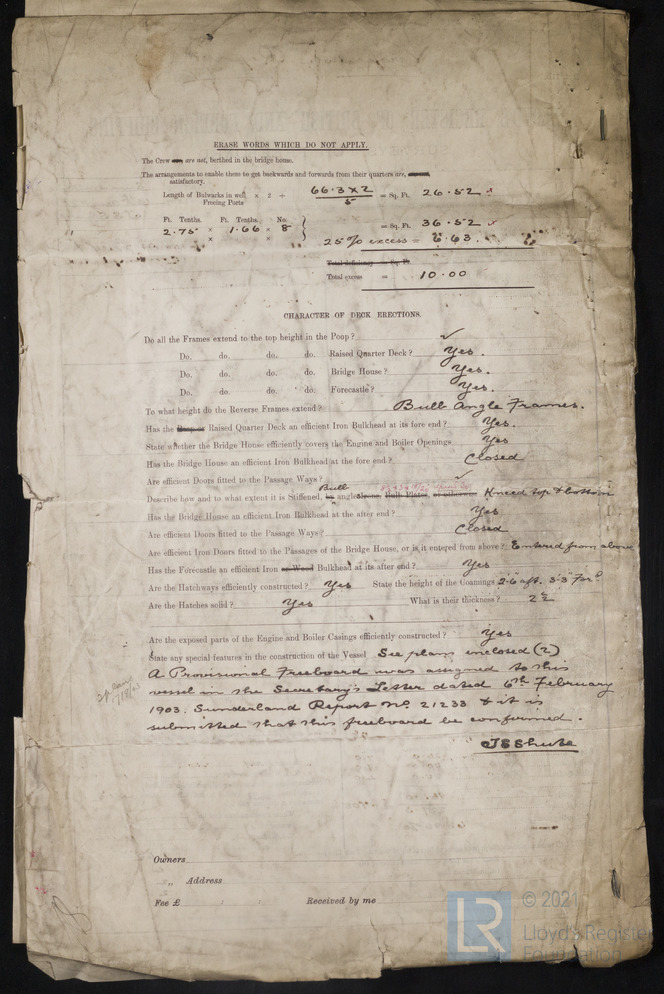 ERASE WORDS WHICH DO NOT APPLY.
The Crew are not, berthed in the bridge house.
The arrangements to enable them to get backwards and forwards from their quarters are,
satisfactory.
Length of Bulwarks in well × 2 ÷ 66.3 x 2 / 5 = Sq. Ft. 26.52 x
Freeing Ports
Ft. Tenths. Ft. Tenths. No. = Sq. Ft. 36.52
2.75 × 1.66 × 8
× × 25% excess = 6.63.
Total deficiency = Sq. Ft.
Total excess = 10.00
CHARACTER OF DECK ERECTIONS.
Do all the Frames extend to the top height in the Poop? ✓
Do. do. do. do. Raised Quarter Deck? Yes.
Do. do. do. do. Bridge House? Yes.
Do. do. do. do. Forecastle? Yes.
To what height do the Reverse Frames extend? Bulb Angle Frames.
Has the Poop or Raised Quarter Deck an efficient Iron Bulkhead at its fore end? Yes.
State whether the Bridge House efficiently covers the Engine and Boiler Openings Yes
Has the Bridge House an efficient Iron Bulkhead at the fore end? Closed
Are efficient Doors fitted to the Passage Ways? ✓
Bulb
Describe how and to what extent it is Stiffened, by angle Bulb Plates, or otherwise Kneed top & bottom
Has the Bridge House an efficient Iron Bulkhead at the after end? Yes
Are efficient Doors fitted to the Passage Ways? Closed
Are efficient Iron Doors fitted to the Passages of the Bridge House, or is it entered from above? Entered from above
Has the Forecastle an efficient Iron or Wood Bulkhead at its after end? Yes
Are the Hatchways efficiently constructed? Yes State the height of the Coamings 2.6 aft. 3.3 Ford
Are the Hatches solid? Yes What is their thickness? 2½
Are the exposed parts of the Engine and Boiler Casings efficiently constructed? Yes
State any special features in the construction of the Vessel See plans enclosed (2)
A Provisional Freeboard was assigned to this
vessel in the Secretary's Letter dated 6th February
1903. Sunderland Report No. 21233 & it is
submitted that this freeboard be confirmed.
Owners
„ Address
Fee £ : : Received by me
LR
© 2021
Lloyd's Register
Foundation